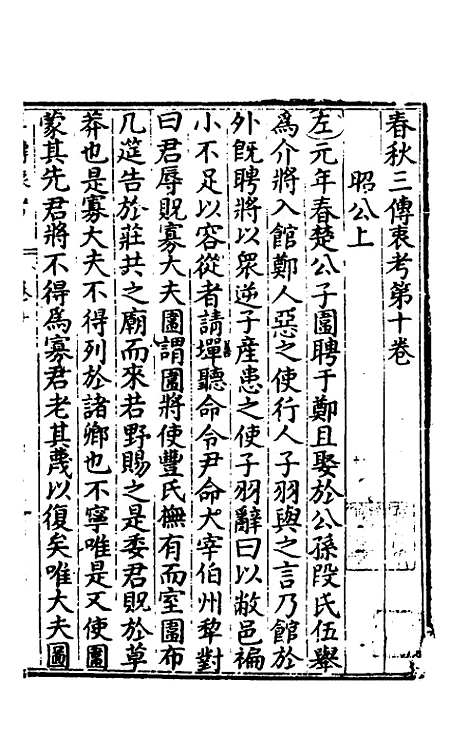 春秋三傳衷考第十卷
昭公上
左元年春楚公子圍聘于鄭且娶於公孫段氏伍舉
為介將入館鄭人惡之使行人子羽與之言乃館於
外既聘將以眾逆子產患之使子羽辭曰以敝邑褊
小不足以容從者請墠聽命令尹命大宰伯州犂對
曰君辱貺寡大夫圍謂圍將使豐氏撫有而室圍布
几筵告於莊共之廟而來若野賜之是委君貺於草
莽也是寡大夫不得列於諸卿也不寧唯是又使圍
蒙其先君將不得爲寡君老其蔑以復矣唯大夫圖